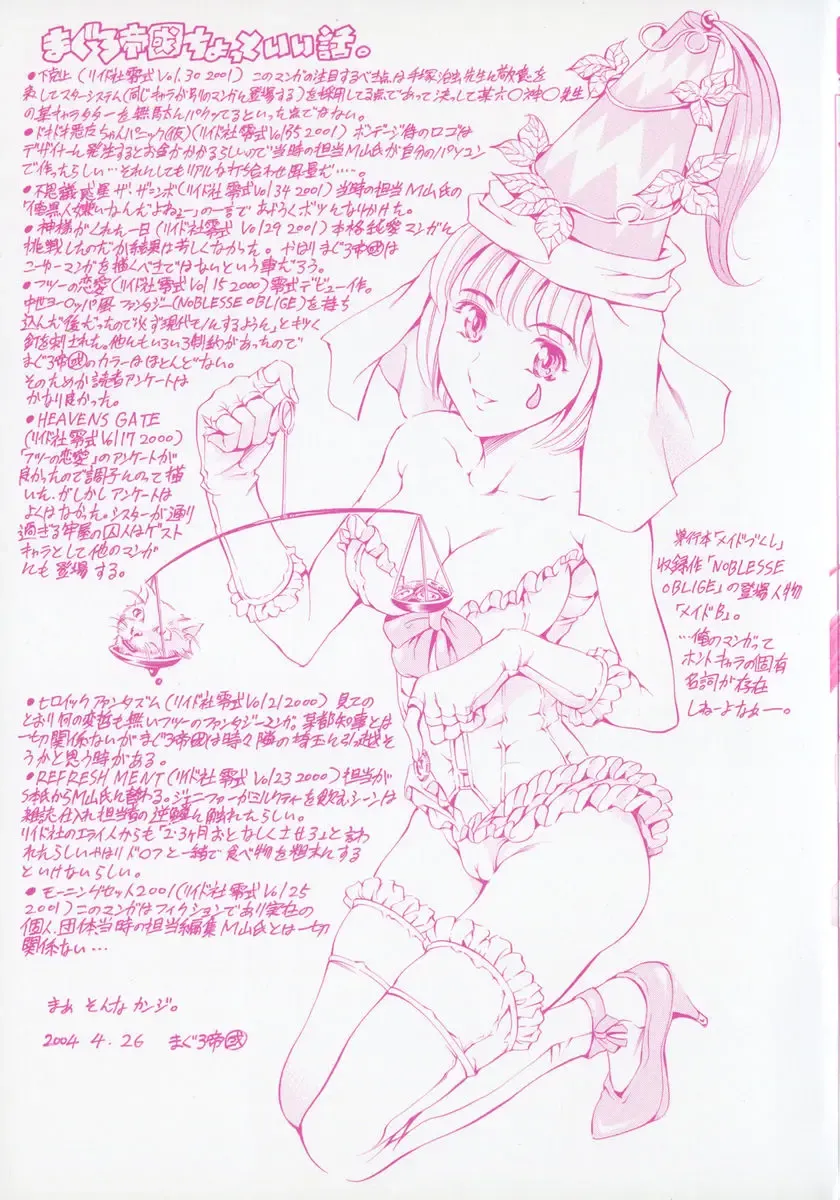 まぐろ帝國ちょっといい話。
●下剋上(リイド社零式Vol.30 2001)このマンガの注目するべき点は手塚治虫先生に敬意を
表してスターシステム(同じキャラが別のマンガに登場する)を採用してる点であって決して某六○神○先生
の某キャラクターを無断でパクってるといった点ではない。
●ドキドキ悪友ちゃんパニック(仮)(リイド社零式Vol.35 2001)ボンデージ侍のロゴは
デザイナーに発注するとお金がかかるらしいので当時の担当M山氏が自分のパソコン
で作ったらしい…それにしてもリアルな打ち合わせ風景だ…。
●不思議惑星ザ・ザンボ(リイド社零式Vol.34 2001)当時の担当M山氏の
「俺黒人嫌いなんだよねェー」の一言であやうくボツになりかけた。
●神様がくれた一日(リイド社零式Vol.29 2001)本格純愛マンガに
挑戦したのだが結果は芳しくなかった。やはりまぐろ帝國は
こーゆーマンガを描くべきではないという事だろう。
●フツーの恋愛(リイド社零式Vol.15 2000)零式デビュー作。
中世ヨーロッパ風ファンタジー(NOBLESSE OBLIGE)を持ち
込んだ後だったので「必ず現代モノにするように」とキツく
釘を刺された。他にもいろいろ制約があったので
まぐろ帝國のカラーはほとんどない。
そのためか読者アンケートは
かなり良かった。
●HEAVENS GATE
(リイド社零式Vol.17 2000)
「フツーの恋愛」のアンケートが
良かったので調子にのって描
いた、がしかしアンケートは
よくはなかった。シスターが通り
過ぎる牢屋の囚人はゲスト
キャラとして他のマンガ
にも登場する。
●ヒロイックファンタズム(リイド社零式Vol.21 2000)見ての
とおり何の変哲も無いフツーのファンタジーマンガ。某都知事とは
一切関係ないがまぐろ帝國は時々隣の埼玉に引越そ
うかと思う時がある。
●REFRESHMENT(リイド社零式Vol.23 2000)担当が
S本氏からM山氏に替わる。ジェニファーがミルクティーを飲むシーンは
雑誌仕入れ担当者の逆鱗に触れたらしい。
リイド社のエライ人からも「2・3ヶ月おとなしくさせろ」と言わ
れたらしいやはりドロフと一緒で食べ物を粗末にする
といけないらしい。
●モーニングセット2001(リイド社零式Vol.25
2001)このマンガはフィクションであり実在の
個人、団体、当時の担当編集M山氏とは一切
関係ない…
まぁ そんなカンジ。
2004 4.26 まぐろ帝國
単行本「メイドづくし」
収録作「NOBLESSE
OBLIGE」の登場人物
「メイドB」。
…俺のマンガって
ホントキャラの固有
名詞が存在
しねーよなァー。